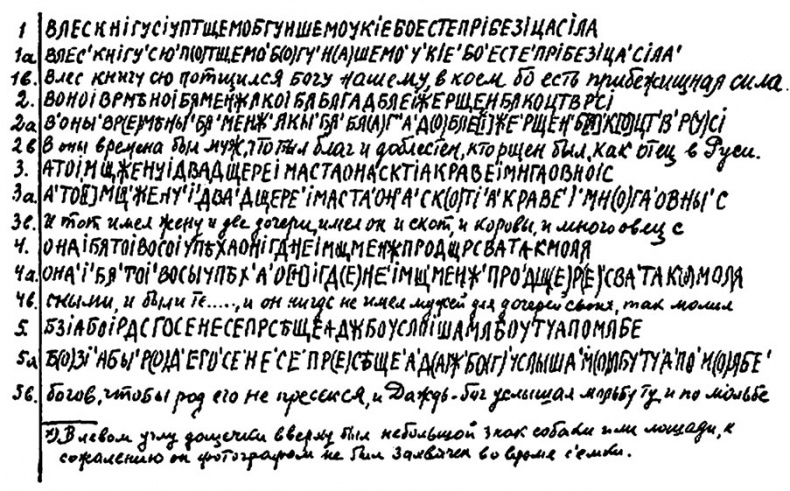 1 ВЛЕСКНІГУСІУПТЩЕМОБГУНШЕМОУКІЕБОЕСТЕПРІБЕЗІЦАСІЛА
1а ВЛЕС'КНІГУ'СЮ'П(О)ТЩЕМО'Б(О)ГУ'Н(А)ШЕМО'У'КІЕ'БО'ЕСТЕ'ПРІБЕЗІЦА'СІЛА'
1в. Влес книгу сю потщился богу нашему, в коем бо есть прибежищная сила.
2. ВОНОІВРМѢНОІБЯМЕНЖЯКОІБЯБЯГАДБЛЕІЖЕРЩЕНБЯКОЦТВРСІ
2а В'ОНЫ'ВР(Е)МѢНЫ'БЯ'МЕНЖ'ЯКЫ'БЯ'БЛ(А)Г'А'Д(О)БЛЕ[І]ЖЕ'РЩЕН'
2в В оны времена был муж, что был благ и доблестен, кто рщен был, как отец в Руси.
3. АТОІМЩЖЕНУІДВАДЩЕРЕІМАСТАОНАСКТІАКРАВЕІМНГАОВНОІС
3а. А'ТО[І]МЩ'ЖЕНУ'І'ДВА'ДЩЕРЕ'ІМАСТА'ОН'А'СК(О)ТІ'А'КРАВЕ'І'МН(О)ГА'ОВНЫ'С
3в. И тот имел жену и две дочери, имел он и скот, и коровы, и много овец с
4. ОНАІБЯТОІВОСОІУПѢХАОНІГДНЕІМЩМЕНЖПРОДЩРСВАТАКМОЛЯ
4а ОНА'І'БЯ'ТОІ'ВОСЫ'УПѢХ'А'О[Н]ІГД(Е)'НЕ'ІМЩ'МЕНЖ'ПРО'ДЩ(Е)Р(Е)'СВА'ТАК'МОЛЯ
4в. оными, и были те....., и он нигде не имел мужей для дочерей своих, так молил
5 БЗІАБОІРДСГОСЕНЕСЕПРСѢЩЕАДЖБОУСЛОІШАМЛБОУТУАПОМЛБЕ
5а Б(О)ЗІ'АБЫ'Р(О)Д'ЕГО'СЕ'НЕ'СЕ'ПР(Е)СѢЩЕ'А'Д(А)Ж'БО(Г)'УСЛЫША'М(О)ЛБУ'ТУ'А'ПО'М(О)ЛБЕ'
5в. богов, чтобы род его не пресекся, и Даждь-бог услышал мольбу ту, и по мольбе
*) В левом углу дощечки вверху был небольшой знак собаки или лошади, к
сожалению он фотографом не был захвачен во время съемки.